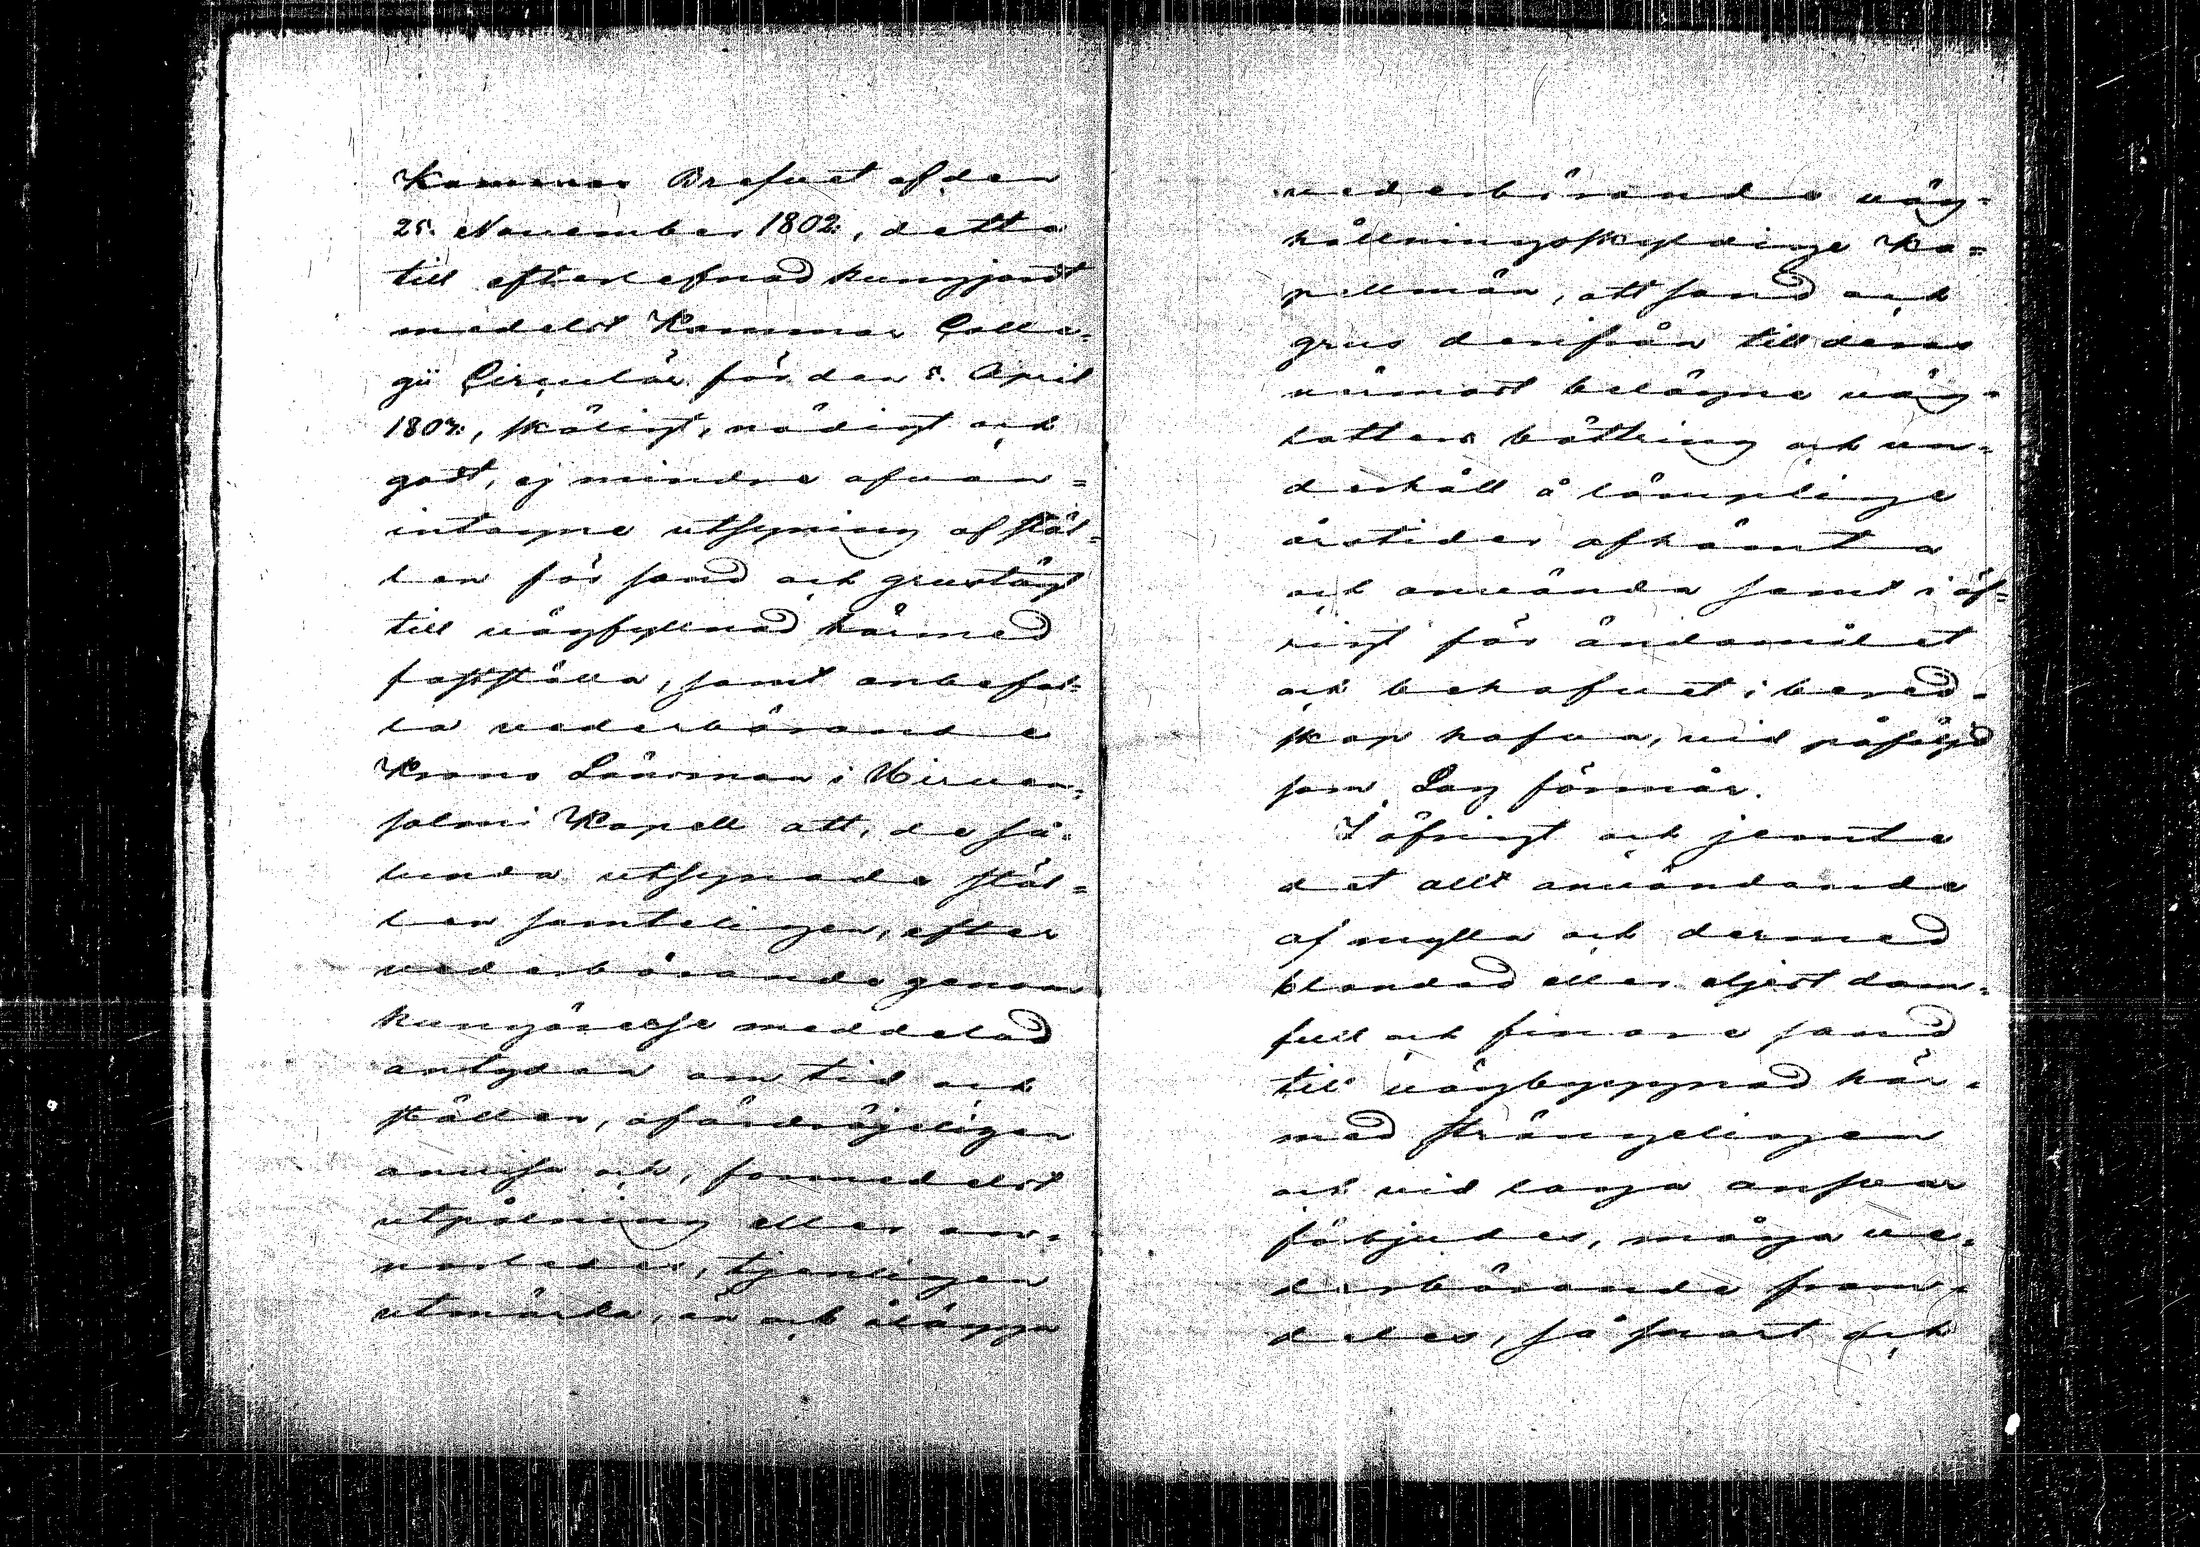 Kammar Brefvet af den
25. November 1802, detta
till efterlefnad kungjordt
medelst Kammar Colle-
gii Circulär för den 5. April
1803, skäligt, nödigt och
godt, ej mindre ofvan=
intagne utsyning af stäl=
len för sand och grustägt
till vägfyllnad härmed
fastställa, samt anbefal=
la vederbörande
Krono Länsman i Hirven=
salmi Kapell att, de så=
lunda utsynade stäl=
len samteligen, efter
vederbörande genom
kungörelse meddelad
antydan om tid och
ställen, ofördröjeligen
anvisa och, formedelst
utpålning eller an=
norledes, tjenligen
utmärka, än och ålägga
vederbörande väg=
hållningsskyldinge Ka=
pellmän, att sand och
grus derifrån till deras
närmast belägne väg=
lotters bättring och un=
derhåll å lämplige
årstider afhämta
och använda samt i öf=
rigt för ändamålet
och behofvet i bered=
skap hafva, vid påföljd
som Lag förmår.
I öfrigt och jemte
det allt användande
af mylla och dermed
blandad eller eljest dam=
full och finare sand
till vägbyggnad här=
med strängeligen
och vid laga ansvar
förbjudes, måga ve=
derbörande fram=
deles, så snart och